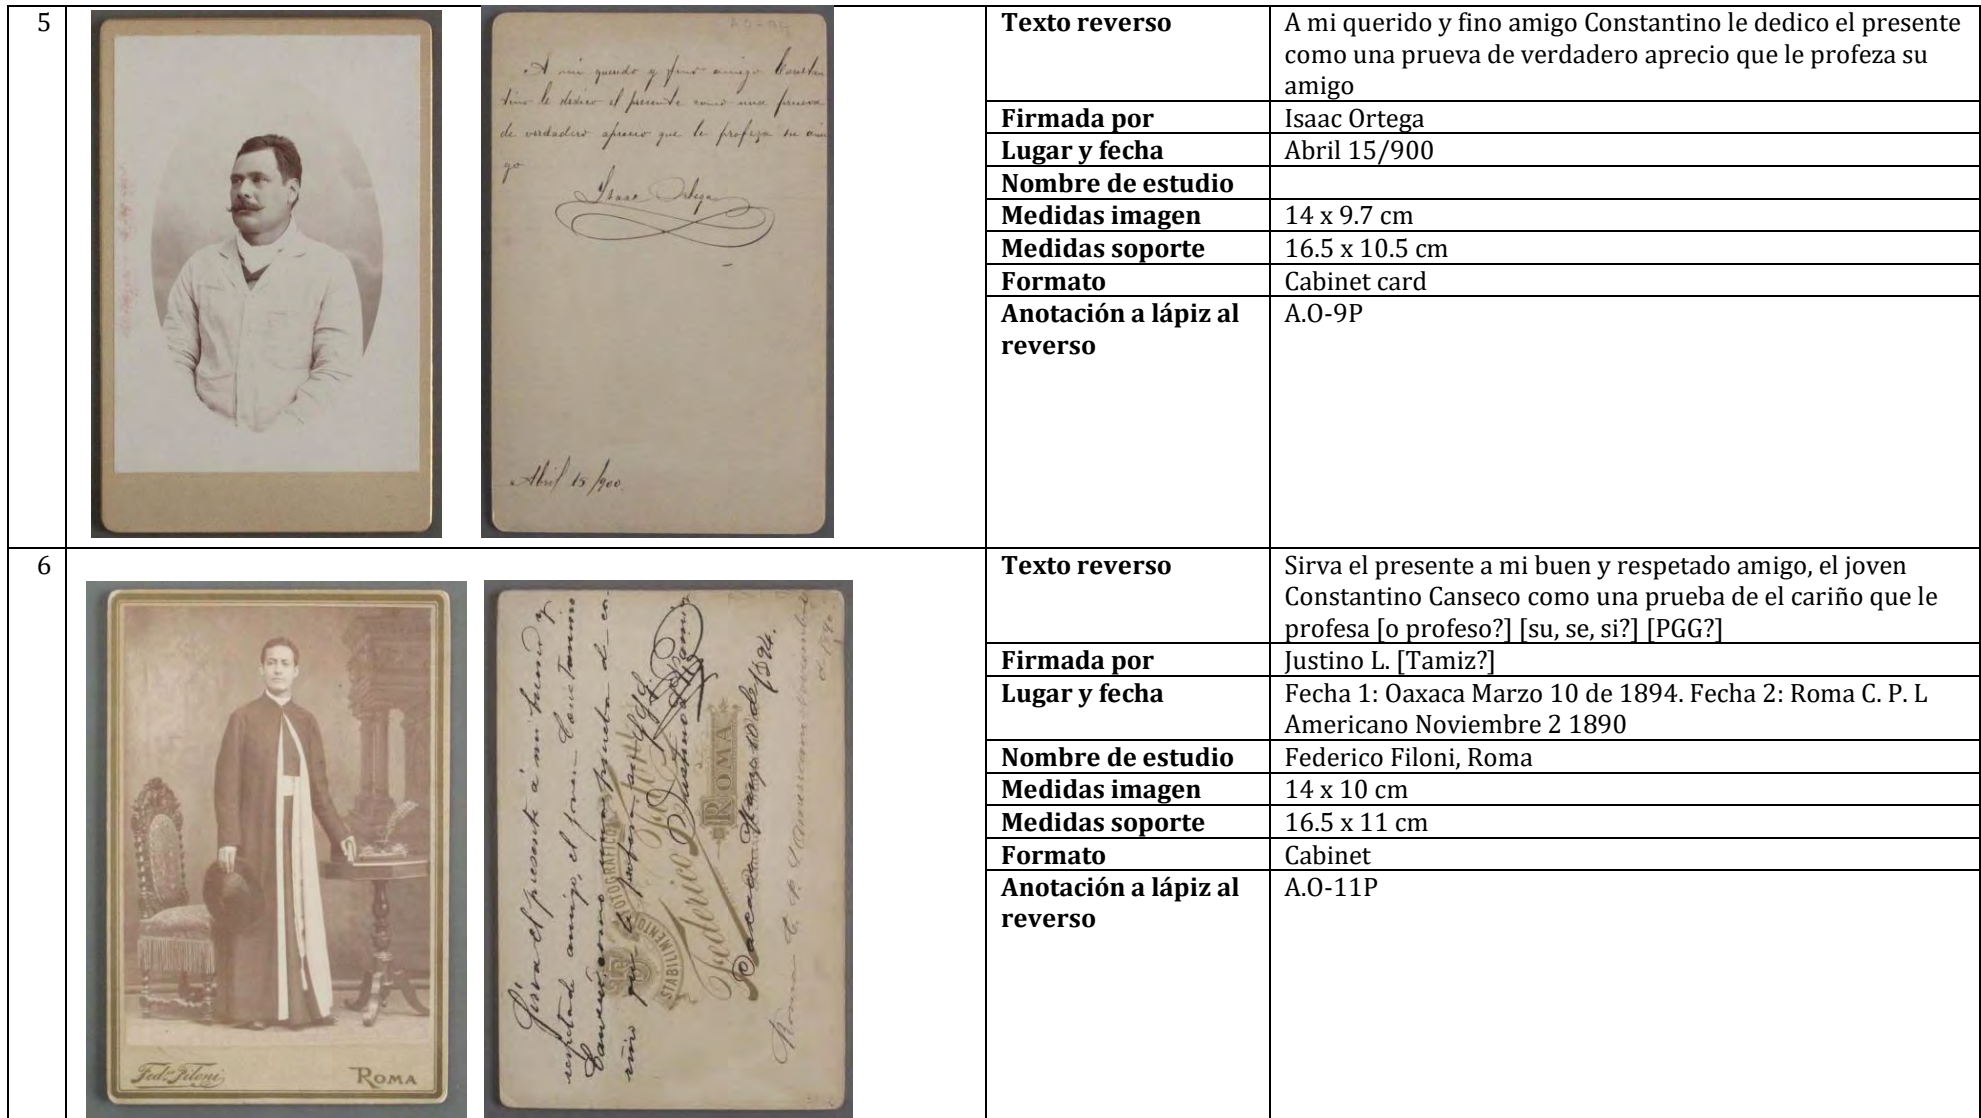 5
A mi querido y fino amigo Constan
tino le dedico el presente como una prueva
de verdadero aprecio que le profeza su ami
go
Isaac Ortega
Abril 15/900.
Texto reverso
A mi querido y fino amigo Constantino le dedico el presente
como una prueva de verdadero aprecio que le profeza su
amigo
Firmada por
Isaac Ortega
Lugar y fecha
Abril 15/900
Nombre de estudio
Medidas imagen
14 x 9.7 cm
Medidas soporte
16.5 x 10.5 cm
Formato
Cabinet card
Anotación a lápiz al
reverso
A.O-9P
6
Fedco Filoni
ROMA
Sirva el presente á mi bueno y
respetado amigo, el joven Constantino
Canseco como una prueba de el ca-
riño que le profesa
Justino
Oaxaca Marzo 10 de
1894.
Roma C. P. L americano Noviembre
2 1890
STABILIMENTO
FOTOGRAFICO
Federico Filoni
ROMA
Texto reverso
Sirva el presente a mi buen y respetado amigo, el joven
Constantino Canseco como una prueba de el cariño que le
profesa [o profeso?] [su, se, si?] [PGG?]
Firmada por
Justino L. [Tamiz?]
Lugar y fecha
Fecha 1: Oaxaca Marzo 10 de 1894. Fecha 2: Roma C. P. L
Americano Noviembre 2 1890
Nombre de estudio
Federico Filoni, Roma
Medidas imagen
14 x 10 cm
Medidas soporte
16.5 x 11 cm
Formato
Cabinet
Anotación a lápiz al
reverso
A.O-11P